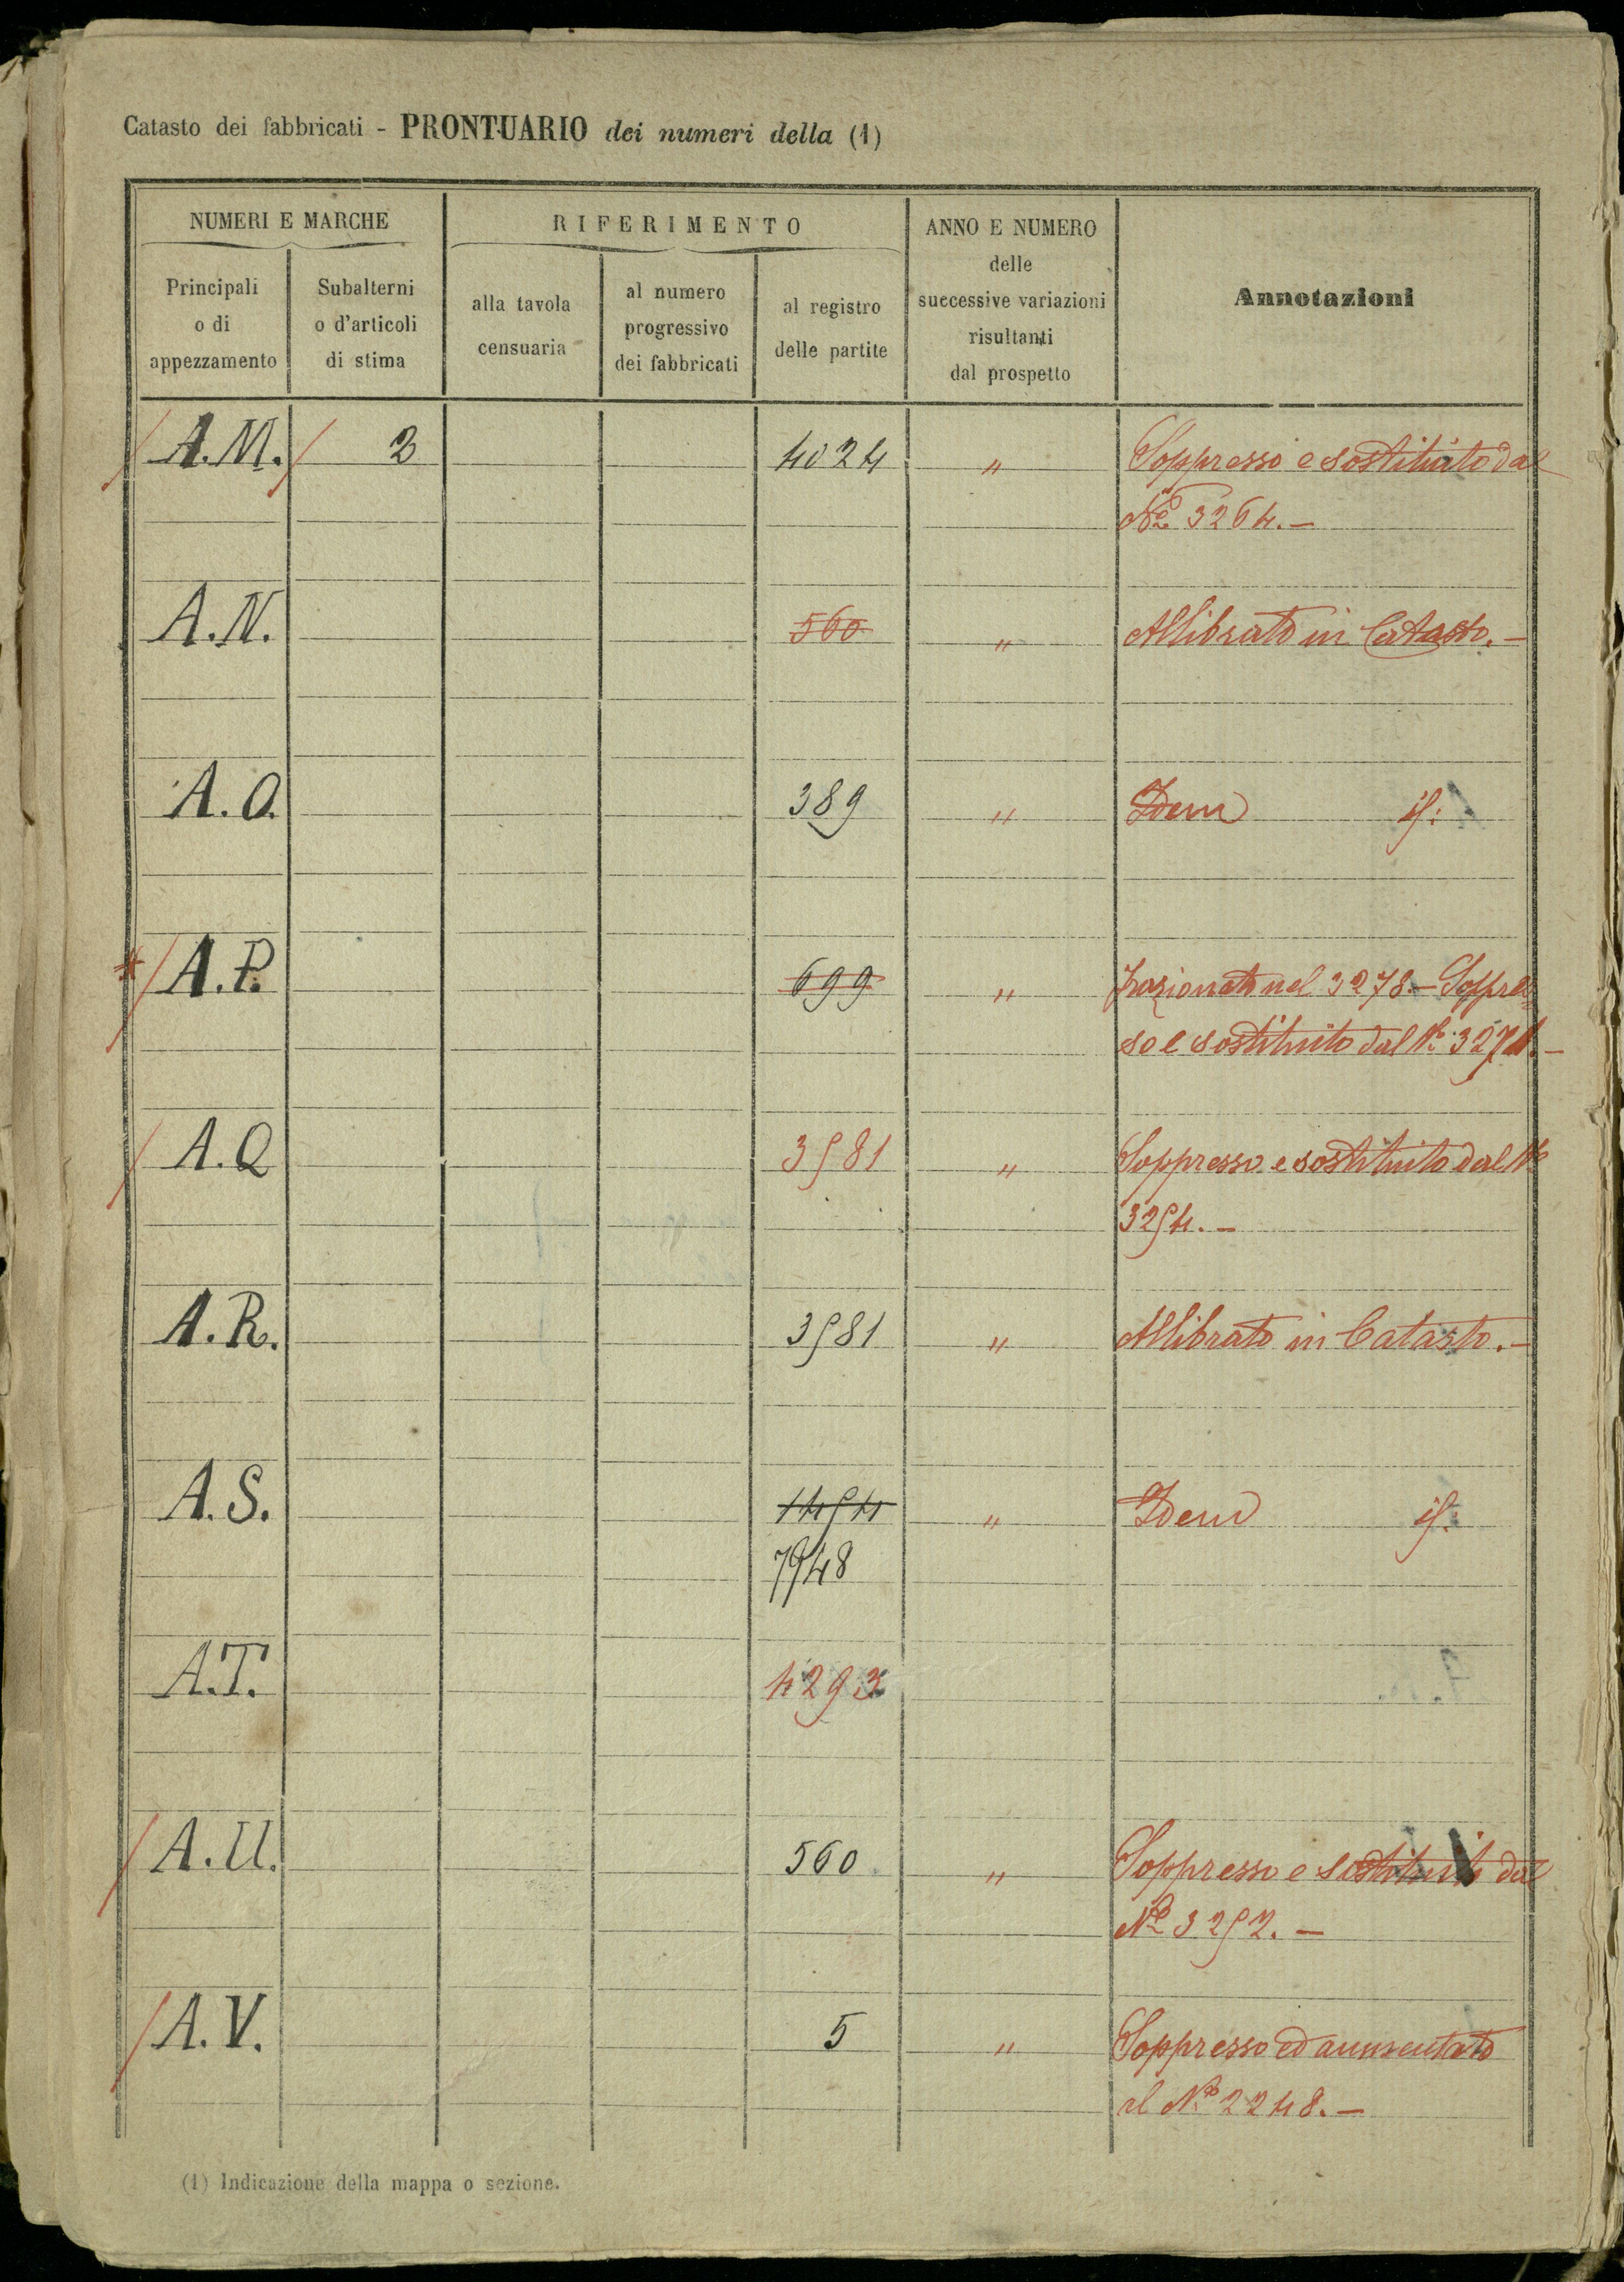 Catasto dei fabbricati - PRONTUARIO dei numeri della (1)
NUMERI E MARCHE
RIFERIMENTO
ANNO E NUMERO
delle
successive variazioni
risultanti
dal prospetto
Annotazioni
Principali
o di
appezzamento
Subalterni
o d'articoli
di stima
alla tavola
censuaria
al numero
progressivo
dei fabbricati
al registro
delle partite
A.M. 2 4024 " Soppresso e sostituito dal
No 3264.-
A.N. 560 " Allibrato in Catasto.-
A.O. 389 " Idem if:
A.P. 699 " Frazionato nel 3278.- Soppres
so e sostituito dal No
A.Q 3581 " Soppresso e sostituito dal No
3254.-
A.R. 3581 " Allibrato in Catasto.-
A.S. 1454 " Idem if.
7948
A.T. 4293
A.U. 560 " Soppresso e sostituito dal
No 3252.-
A.V. 5 " Soppresso ed aumentato
al No 2248.-
(1) Indicazione della mappa o sezione.